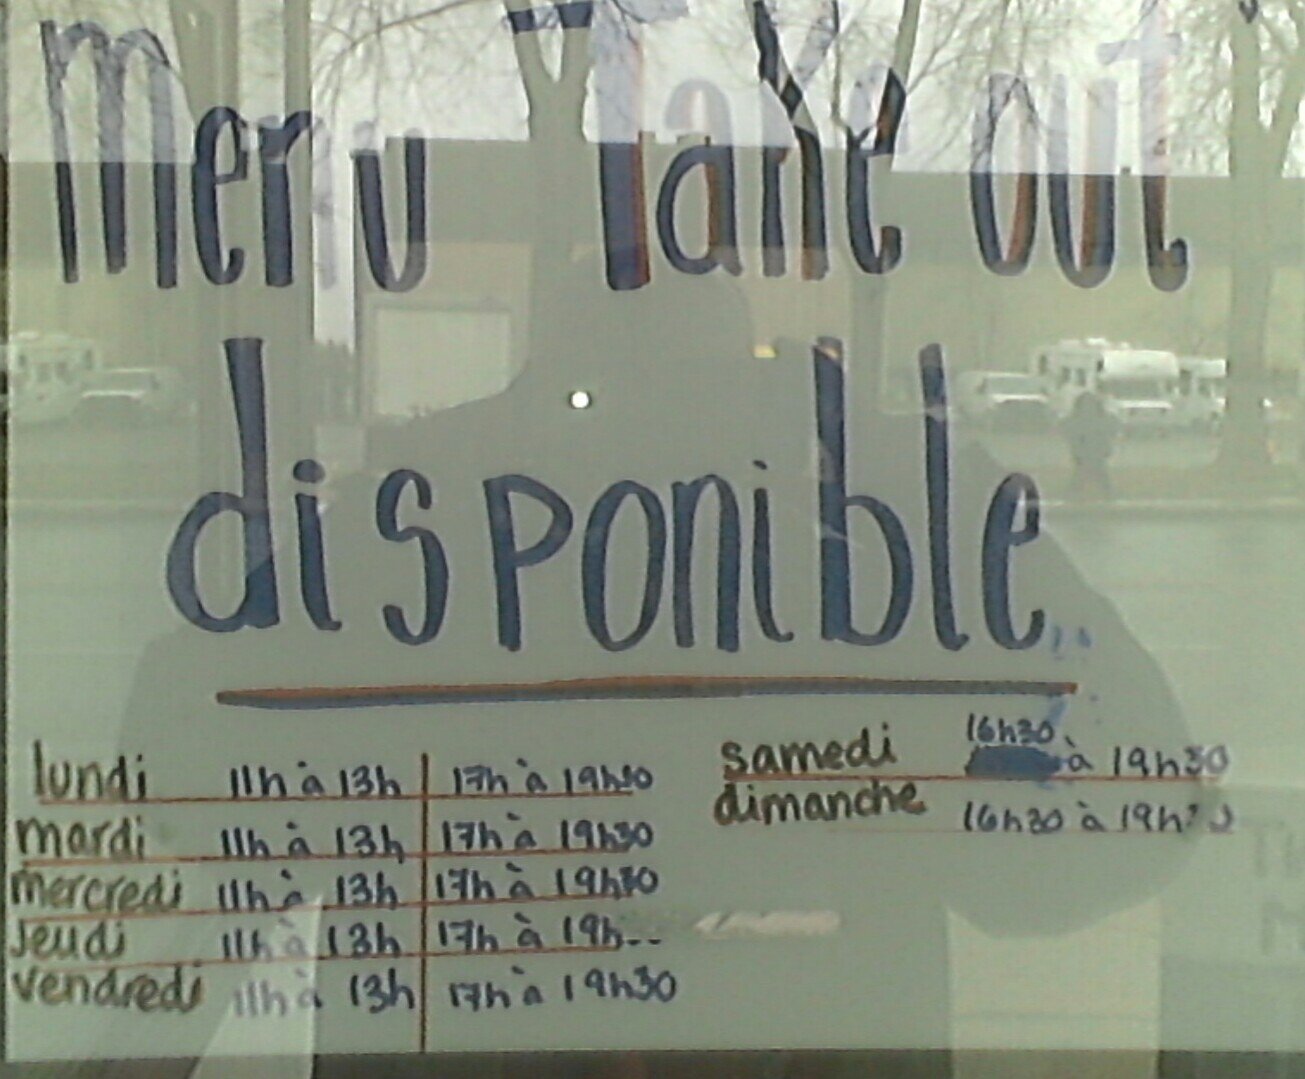 menu Take out
disponible
lundi 11h à 13h 17h à 19h30
mardi 11h à 13h 17h à 19h30
mercredi 11h à 13h 17h à 19h30
Jeudi 11h à 13h 17h à
vendredi 11h à 13h 17h à 19h30
16h30
samedi à 19h30
dimanche 16h30 à